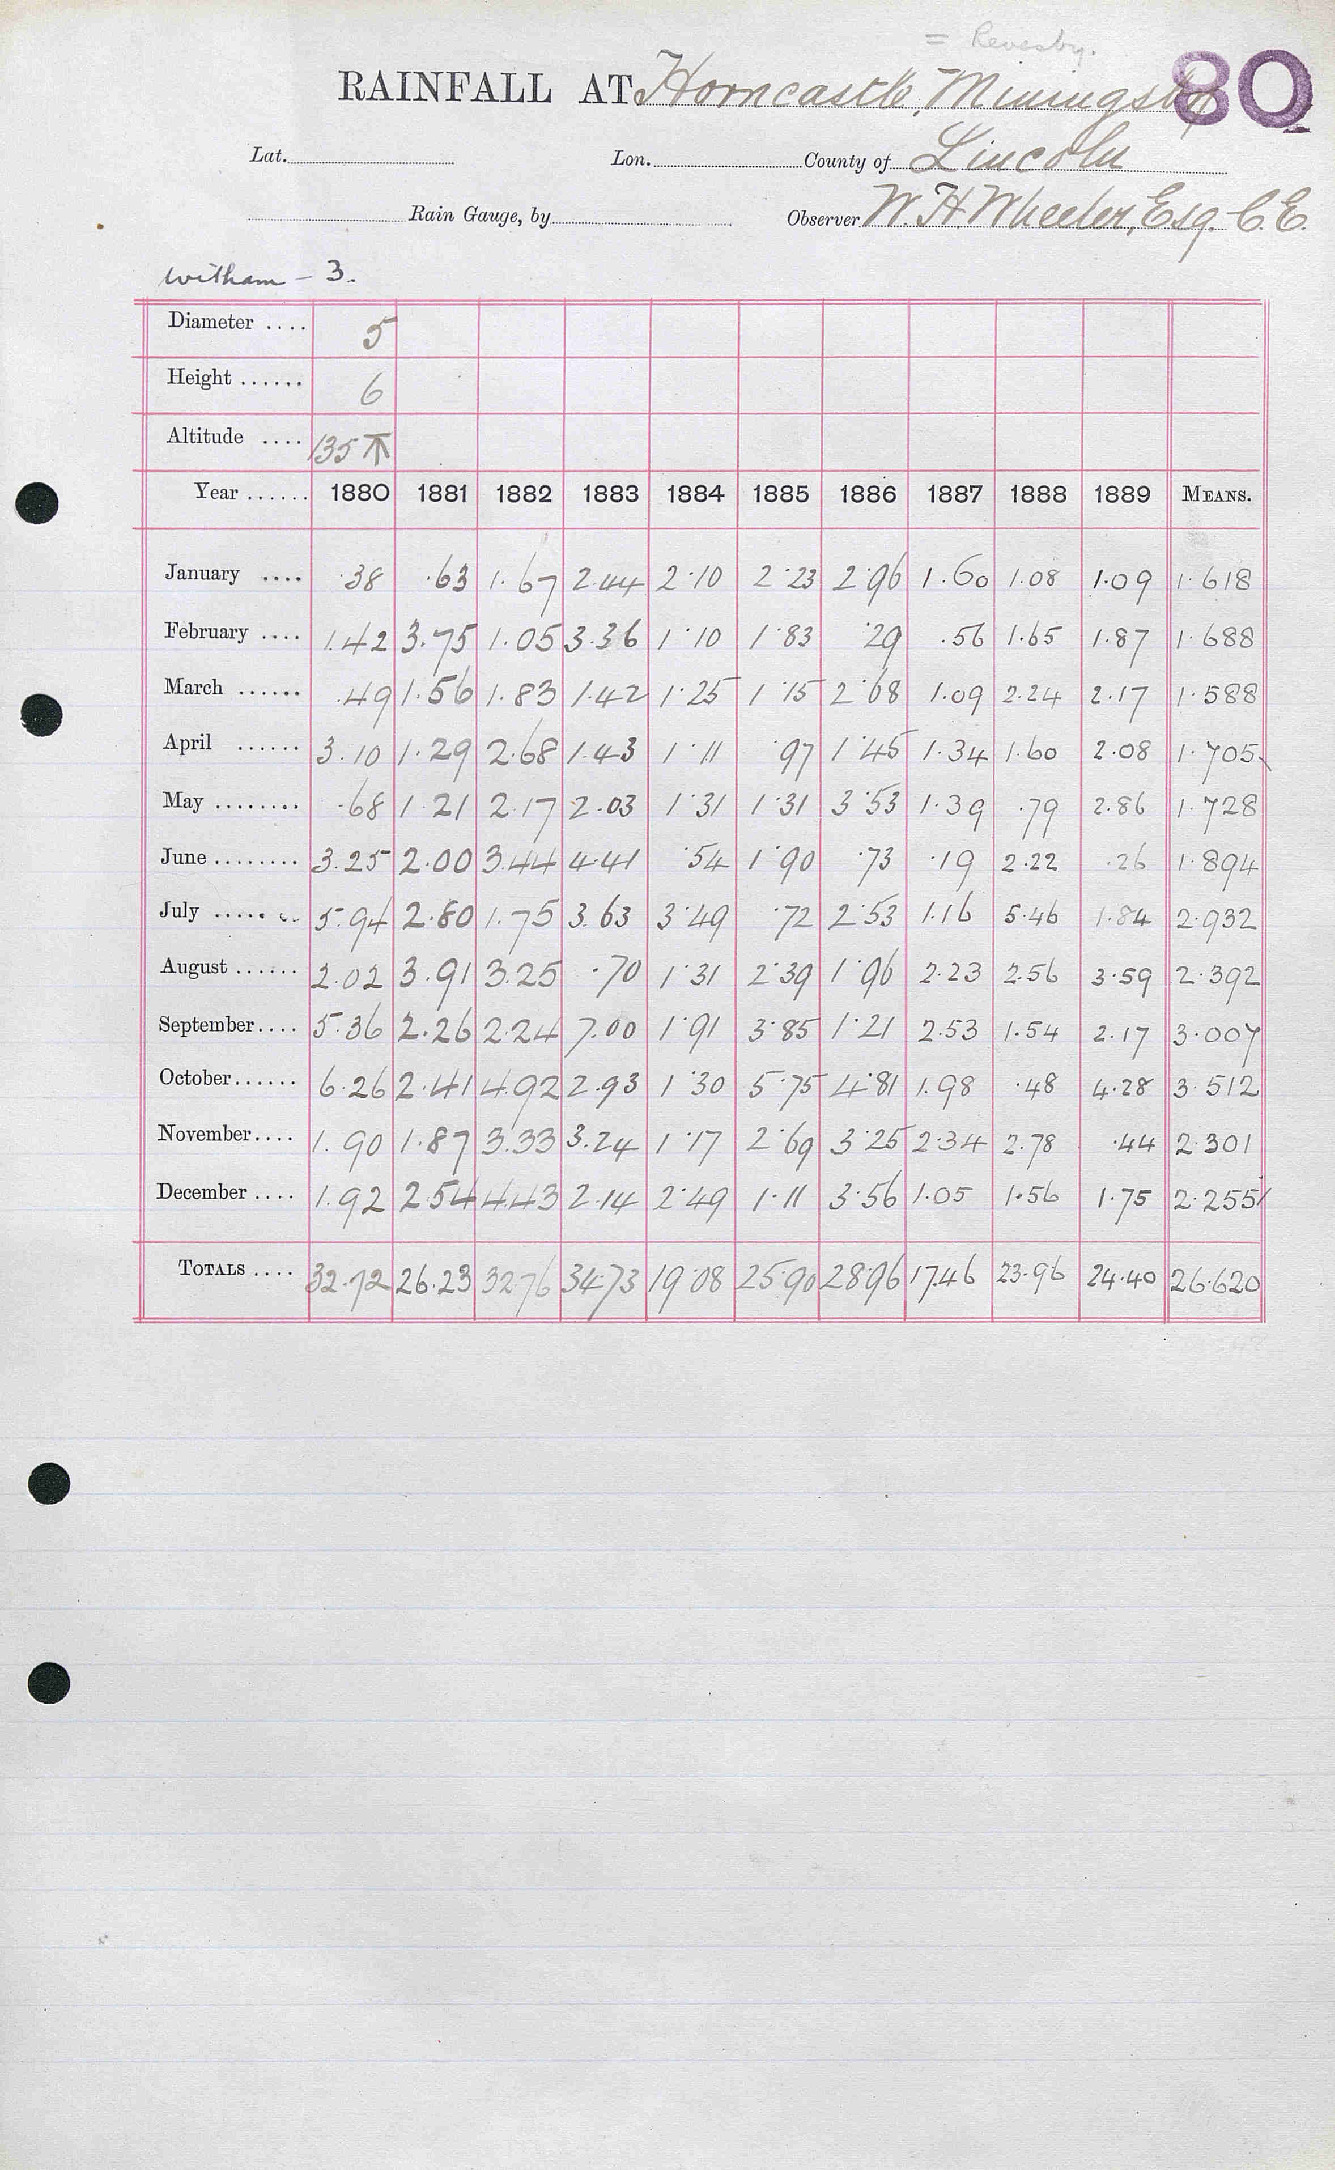 = Revesby.
RAINFALL AT Horncastle, Miningsby 80
Lat. Lon. County of Lincoln
Rain Gauge, by Observer W. H. Wheeler, Esq. C.E.
Witham - 3.
Diameter .... 5
Height ...... 6
Altitude .... 135 ⚻
Year ...... 1880 1881 1882 1883 1884 1885 1886 1887 1888 1889 MEANS.
January .... .38 .63 1.67 2.44 2.10 2.23 2.96 1.60 1.08 1.09 1.618
February .... 1.42 3.75 1.05 3.36 1.10 1.83 .29 .56 1.65 1.87 1.688
March ...... .49 1.56 1.83 1.42 1.25 1.15 2.68 1.09 2.24 2.17 1.588
April ...... 3.10 1.29 2.68 1.43 1.11 .97 1.45 1.34 1.60 2.08 1.705
May ........ .68 1.21 2.17 2.03 1.31 1.31 3.53 1.39 .79 2.86 1.728
June ........ 3.25 2.00 3.44 4.41 .54 1.90 .73 .19 2.22 .26 1.894
July ........ 5.94 2.80 1.75 3.63 3.49 .72 2.53 1.16 5.46 1.84 2.932
August ...... 2.02 3.91 3.25 .70 1.31 2.39 1.96 2.23 2.56 3.59 2.392
September.... 5.36 2.26 2.24 7.00 1.91 3.85 1.21 2.53 1.54 2.17 3.007
October...... 6.26 2.41 4.92 2.93 1.30 5.75 4.81 1.98 .48 4.28 3.512
November.... 1.90 1.87 3.33 3.24 1.17 2.69 3.25 2.34 2.78 .44 2.301
December .... 1.92 2.54 4.43 2.14 2.49 1.11 3.56 1.05 1.56 1.75 2.255
TOTALS .... 32.72 26.23 32.76 34.73 19.08 25.90 28.96 17.46 23.96 24.40 26.620